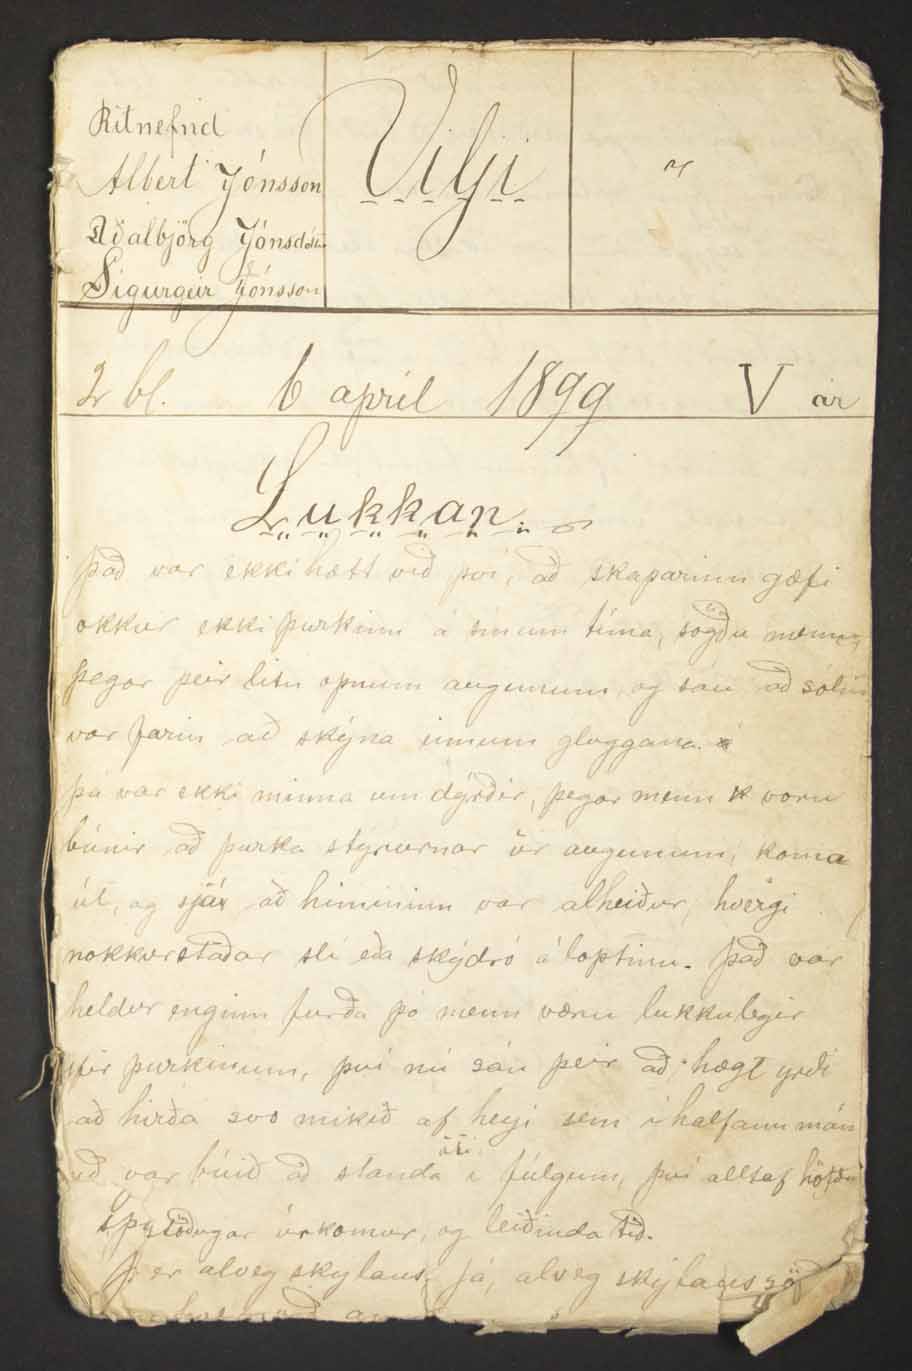 Ritnefnd
Albert Jónsson
Aðalbjörg Jónsdóttir
Sigurgeir Jónsson
Vilji
2 bl. 6 apríl 1899 V ár
Lukkan.
það var ekki hætt við því, að skaparinn gæfi
okkur ekki þurkinn á sínum tíma, sögðu menn,
þegar þeir litu opnum augunum, og sáu að sólin
var farin að skýna innum gluggana.
þá var ekki minna um dýrðir, þegar menn voru
búnir að þurka stýrurnar úr augunum, koma
út, og sjá að himininn var alheiður, hvergi
nokkurstaðar ský eða skýdró á loptinu. það var
heldur enginn furða þó menn væru lukkulegir
yfir þurkinum, því nú sáu þeir að hægt yrði
að hirða svo mikið af heyi sem í halfann mán
uð var búið að standa úti í fúlgum, því alltaf höfðu
stöðugar úrkomur, og leiðinda tíð.
er alveg skýlaus, Já, alveg skýlaus